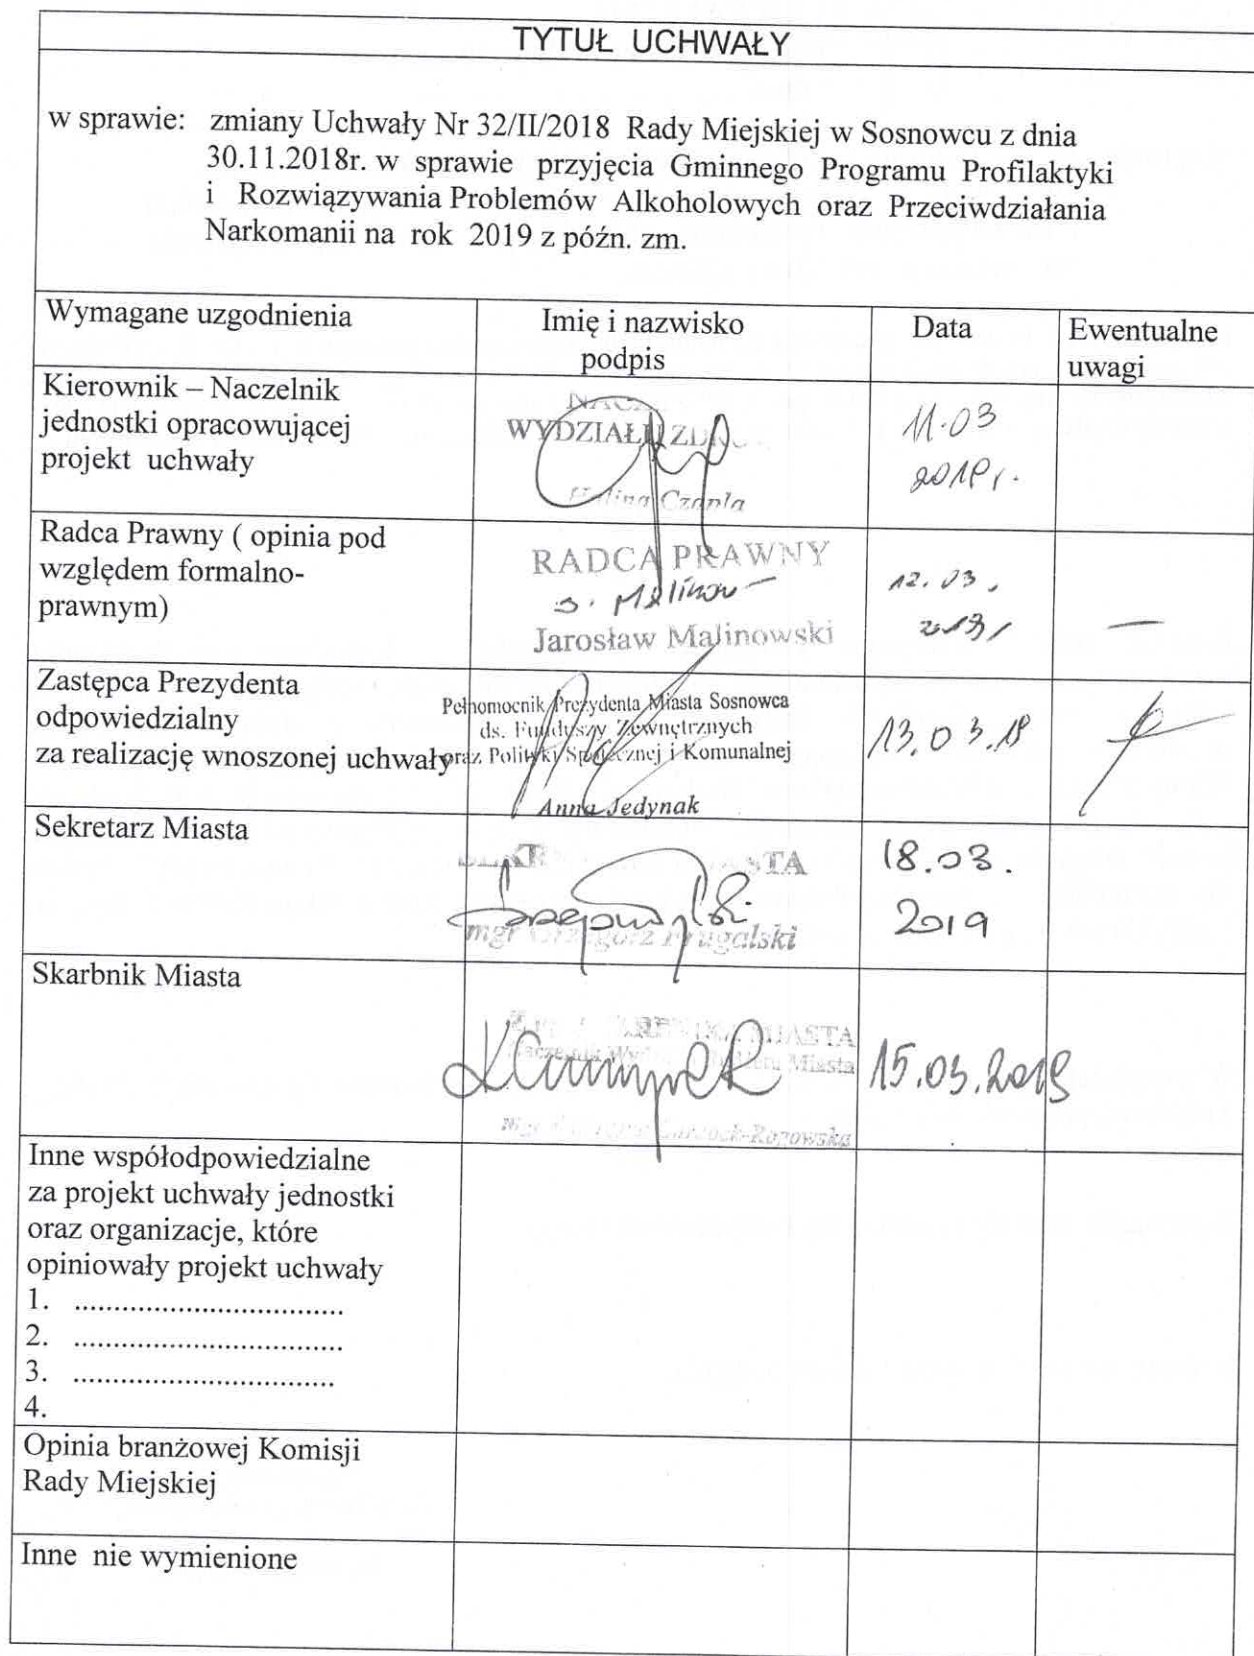 TYTUŁ UCHWAŁY
w sprawie: zmiany Uchwały Nr 32/II/2018 Rady Miejskiej w Sosnowcu z dnia
30.11.2018r. w sprawie przyjęcia Gminnego Programu Profilaktyki
i Rozwiązywania Problemów Alkoholowych oraz Przeciwdziałania
Narkomanii na rok 2019 z późn. zm.
Wymagane uzgodnienia
Imię i nazwisko
podpis
Data
Ewentualne
uwagi
Kierownik – Naczelnik
jednostki opracowującej
projekt uchwały
WYDZIAŁU
Halina Czapla
11.03
2019r.
Radca Prawny ( opinia pod
względem formalno-
prawnym)
RADCA PRAWNY
Jarosław Malinowski
12.03.
2019r
—
Zastępca Prezydenta
odpowiedzialny
za realizację wnoszonej uchwały
Pełnomocnik Prezydenta Miasta Sosnowca
ds. Funduszy Zewnętrznych
oraz Polityki Społecznej i Komunalnej
Anna Jedynak
13.03.19
Sekretarz Miasta
SEKRETARZ MIASTA
mgr Grzegorz
18.03.
2019
Skarbnik Miasta
MIASTA
Naczelnik Miasta
15.03.2019
Inne współodpowiedzialne
za projekt uchwały jednostki
oraz organizacje, które
opiniowały projekt uchwały
1. ..................................
2. ..................................
3. .................................
4.
Opinia branżowej Komisji
Rady Miejskiej
Inne nie wymienione